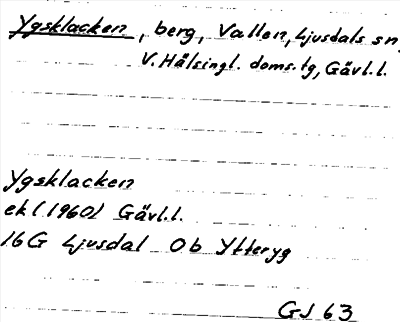 Ygsklacken, berg, Vallen, Ljusdals sn,
V. Hälsingl. doms.tg, Gävl.l.
Ygsklacken
ek (1960) Gävl.l.
16G Ljusdal 0b Ytteryg
GJ 63